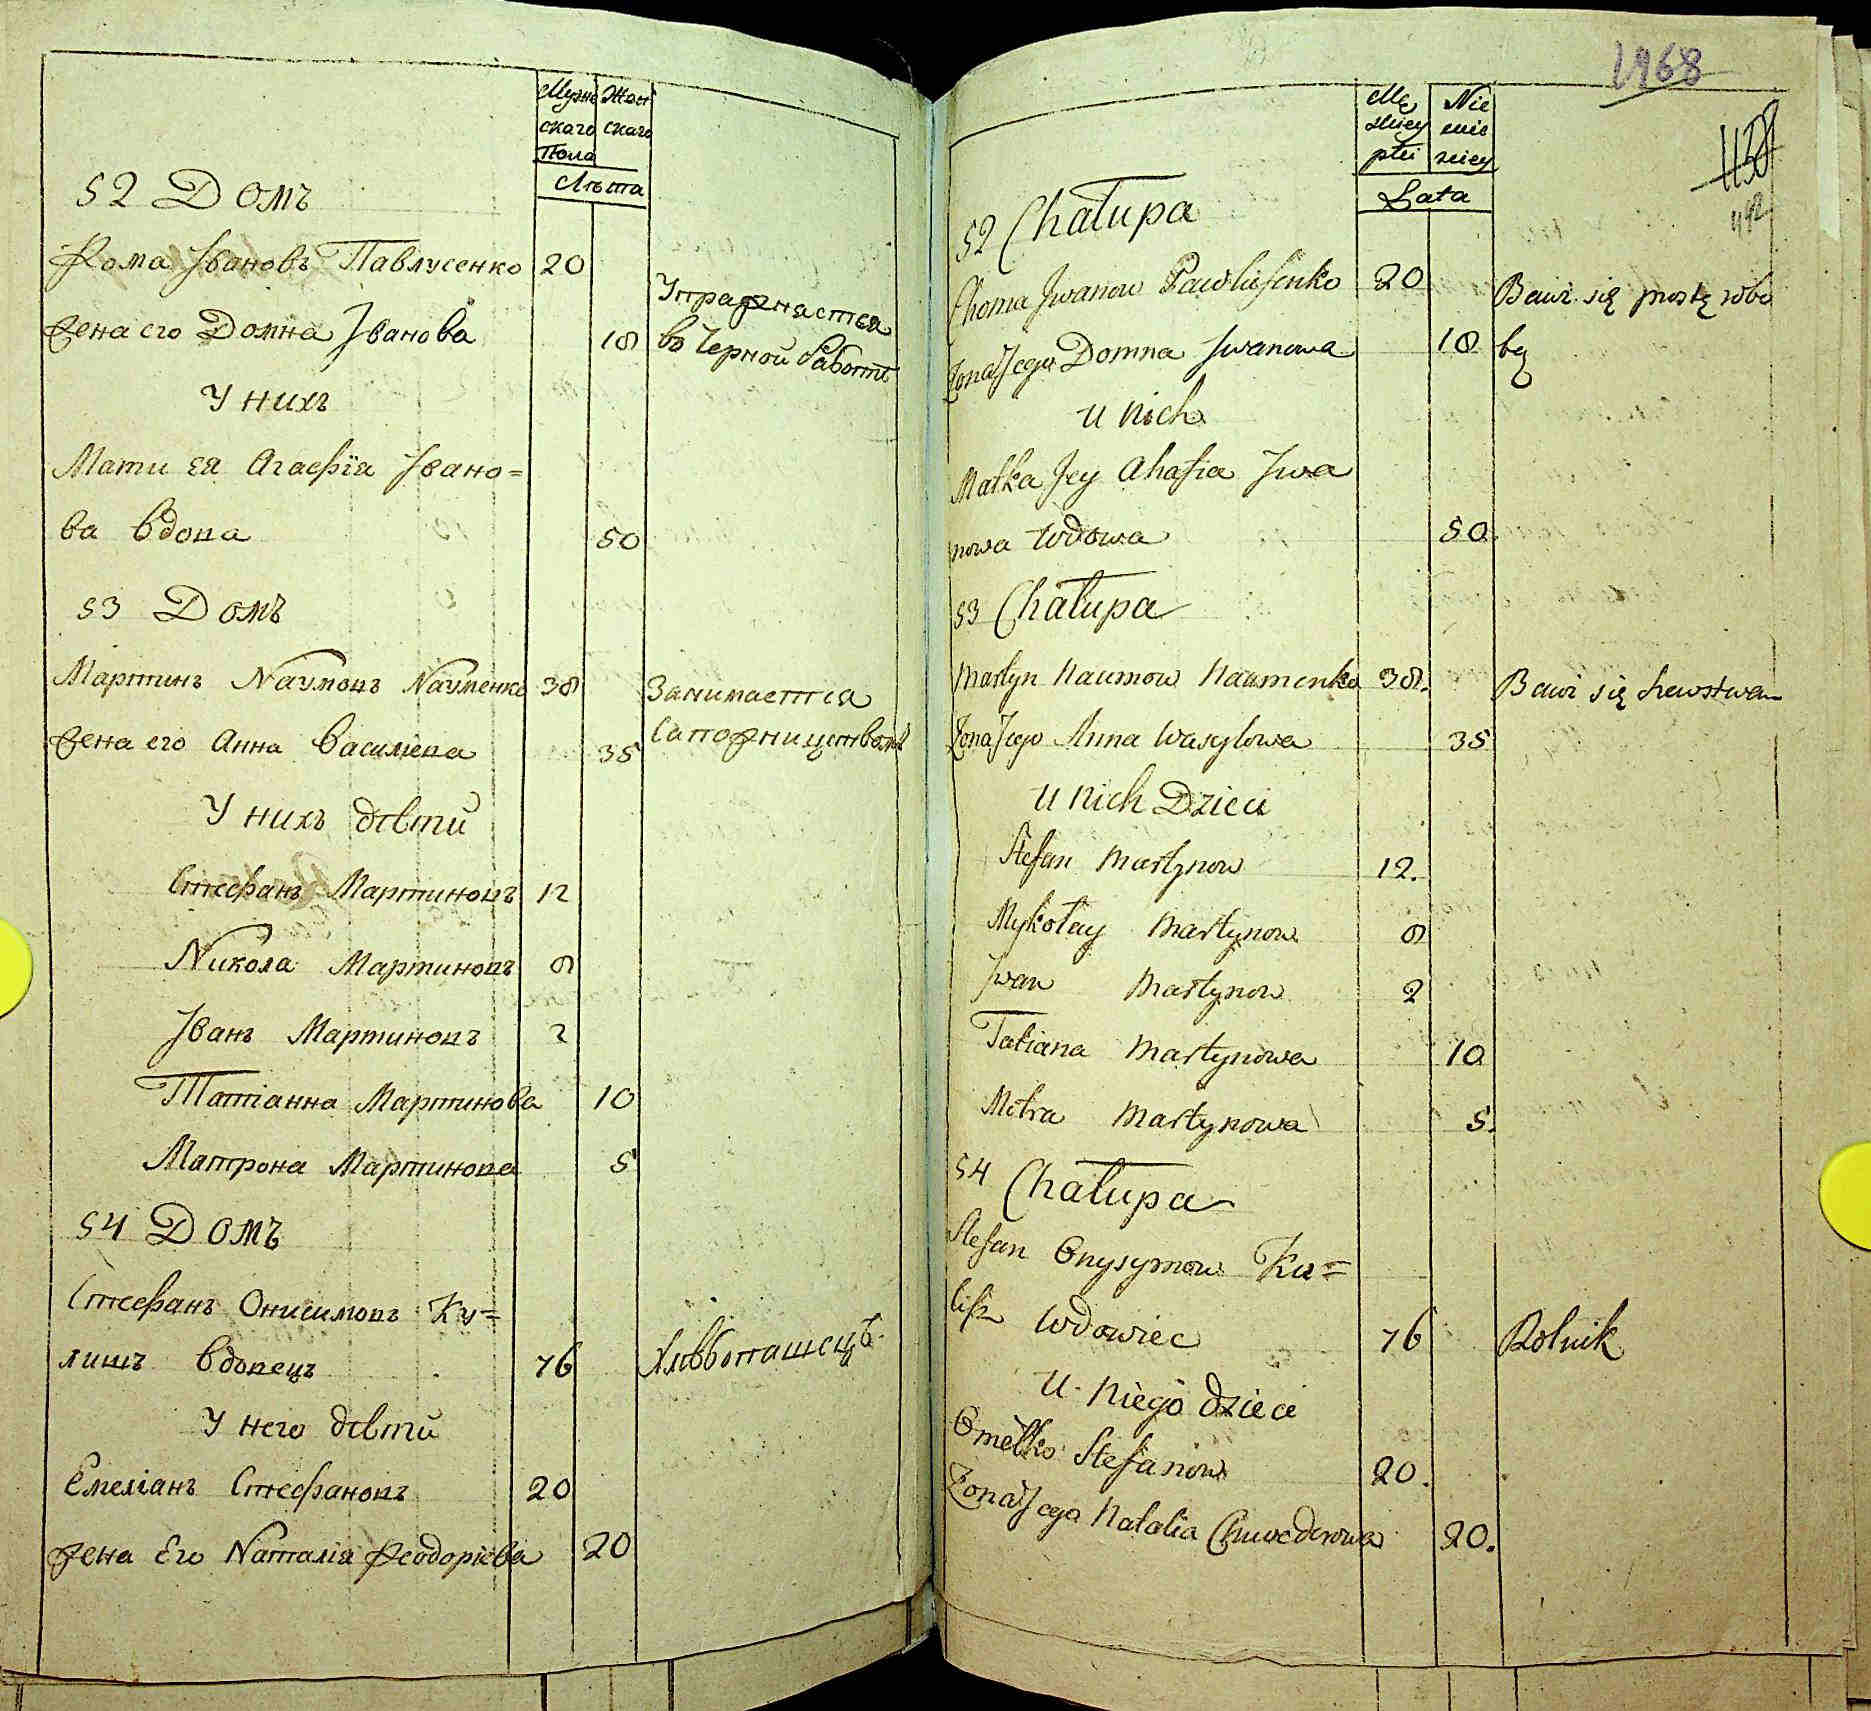 Мужескаго Пола
Женскаго
Лѣта
52 Домъ
Фома Івановъ Павлусенко 20
Жена его Домна Іванова 18
Упражняется
въ Черной Работѣ
У нихъ
Мати ея Агафїа Івано=
ва Вдова 50
53 Домъ
Мартинъ Наумовъ Науменко 38
Занимается
Жена его Анна Василева 35
Сапожництвомъ
У нихъ дѣти
Стефанъ Мартиновъ 12
Никола Мартиновъ 8
Іванъ Мартиновъ 2
Татіанна Мартинова 10
Матрона Мартинова 5
54 Домъ
Стефанъ Онисимовъ Ку=
лишъ Вдовецъ 76
Хлѣбопашецъ
У него дѣти
Емеліанъ Стефановъ 20
Жена Его Наталіа Феодоріева 20
1968
1138
492
Lata
52 Chałupa
Choma Jwanow Pawlusenko 20
Bawi się prostą robo
Żona Jego Domna Jwanowa 18
bą
u nich
Matka Jey Ahafia Jwa
nowa Wdowa 50
53 Chałupa
Martyn Naumow Naumenko 38.
Bawi się szewstwem
Żona Jego Anna Wasylowa 35
u nich Dzieci
Stefan Martynow 12.
Mykołay Martynow 8
Jwan Martynow 2
Tatiana Martynowa 10
Motra Martynowa 5.
54 Chałupa
Stefan Onysymow Ku=
lisz Wdowiec 76
Rolnik
u niego dzieci
Omelko Stefanow 20.
Żona Jego Natalia Chwedorowa 20.